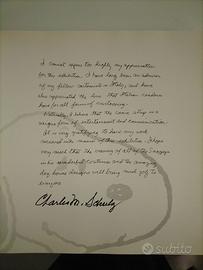 I cannot express too highly my appreciation
for this exhibition. I have long been an admirer
of my fellow cartoonists in Italy, and have
also appreciated the love that Italian readers
have for all forms of cartooning.
Naturally, I believe that the comic strip is a
unique form of entertainment and communication.
It is very gratifying to have my work
I hope
very much that the viewing of all of the
wonderful costumes and the
dog house designs will bring much joy to
everyone
Charles M. Schulz
subito